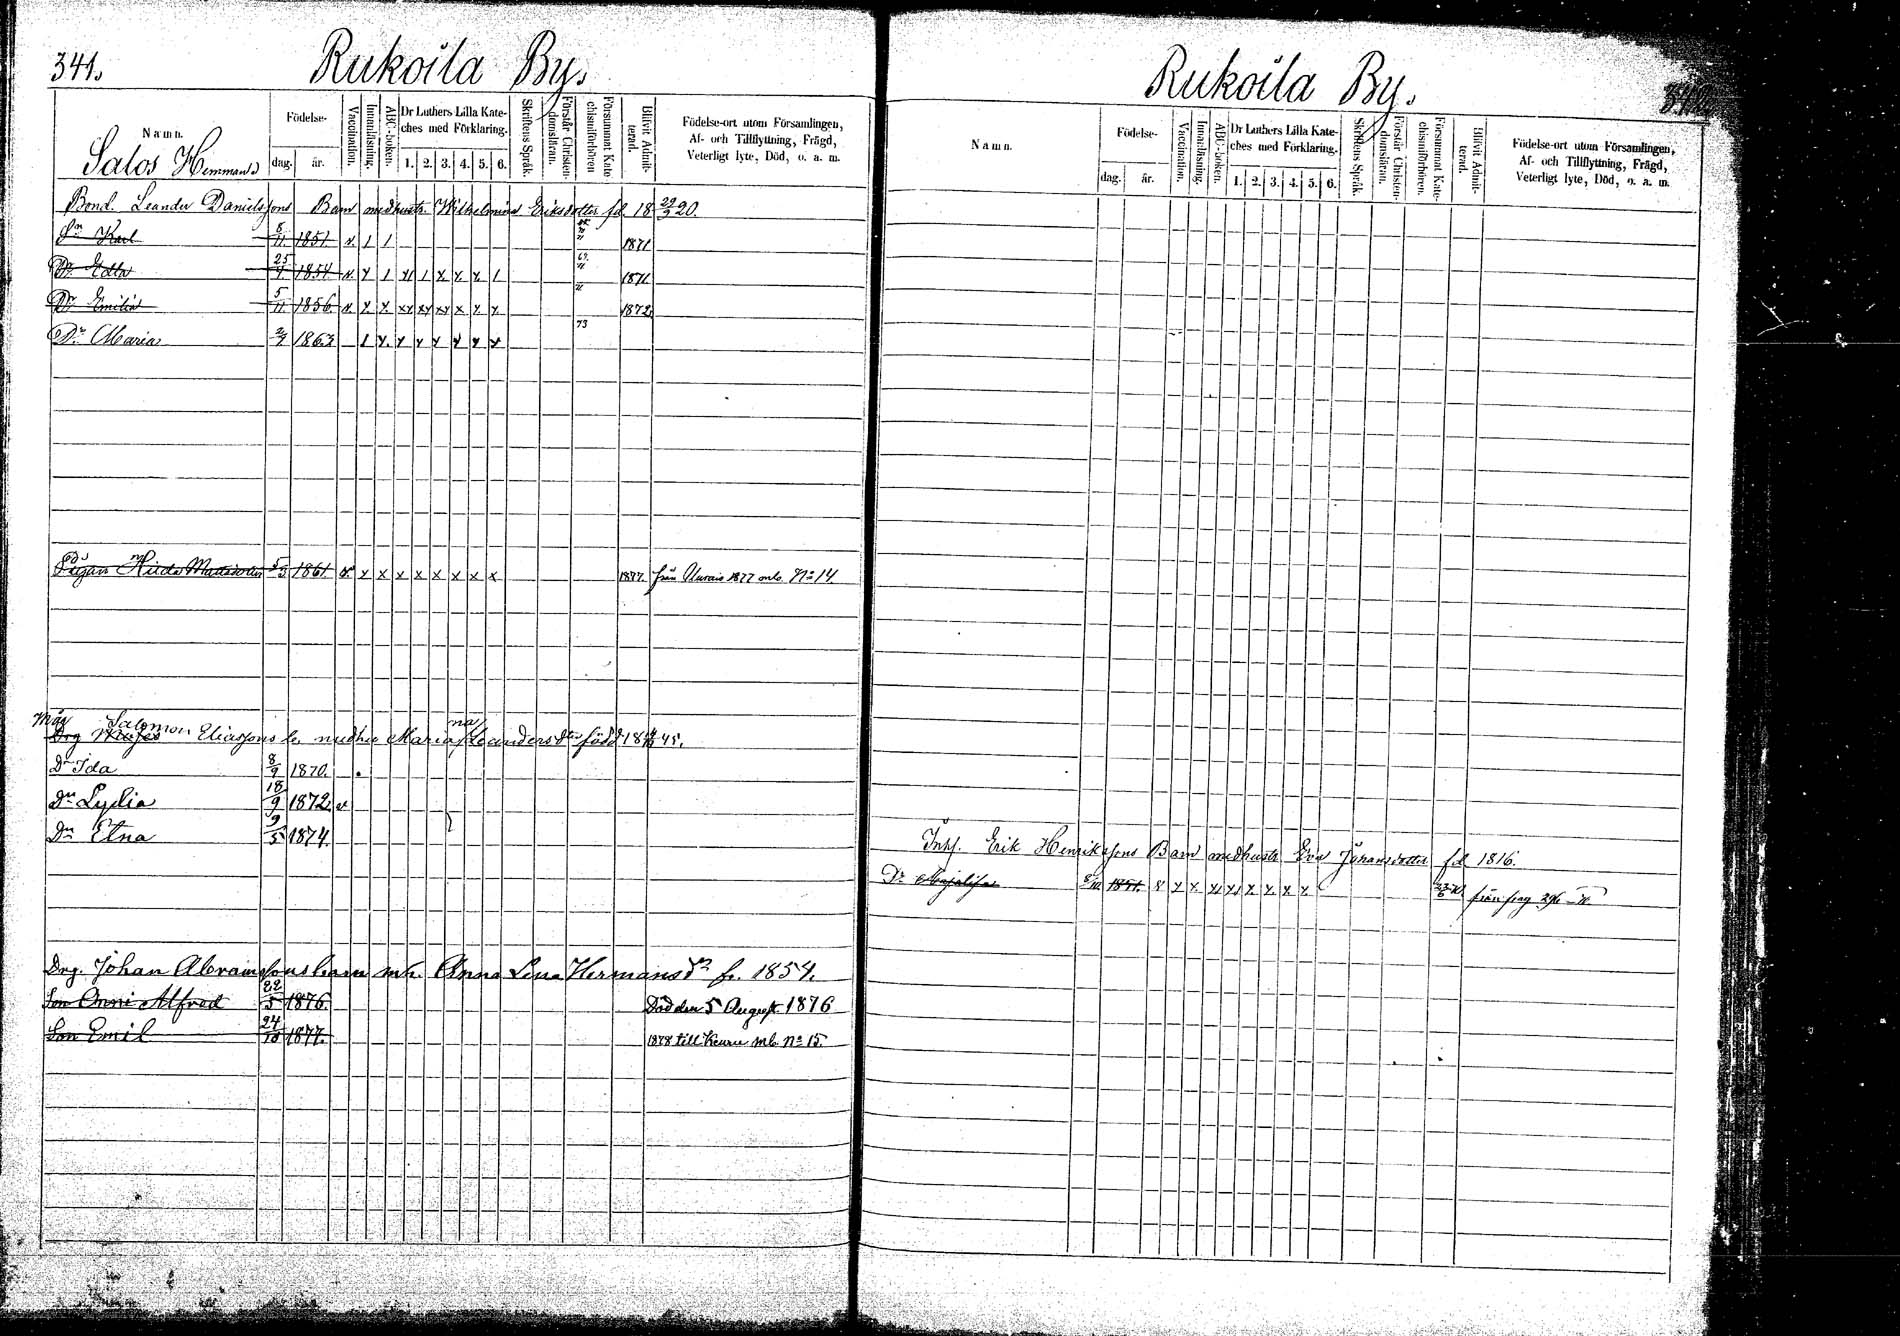 341.
Rukoila By.
Namn.
Födelse-
dag. år.
Vaccination.
Innanläsning.
ABC-boken.
Dr Luthers Lilla Kateches med Förklaring.
1. 2. 3. 4. 5. 6.
Skriftens Språk.
Förstår Christendomsläran.
Försummat Katechismiförhören
Blifvit Admitterad.
Födelse-ort utom Församlingen,
Af- och Tillflyttning, Frägd,
Veterligt lyte, Död, o. a. m.
Salos Hemmans
Bond. Leander Danielssons Barn medhustr. Wilhelmina Eriksdotter fd. 18 29/3 20.
Sn Karl 8/11 1851 1 1 1871
Dr Edla 25/4 1854 1871
Dr Emilia 5/11 1856. 1872.
73
Dr Maria 2/7 1863
Pigan Hilda Mattsdotter 1861 x x x x x x x x 1877. från Alavais 1877 mb. No 14
Måg Salomon Eliassons b. medhu Mariana Leandersdtr född 18 45.
Dr Ida 8/9 1870.
Dr Lydia 18/9 1872 v
Dr Etna 9/5 1874.
Drg. Johan Abramssons barn mh. Anna Lena Hermansdr f. 1854.
Son Onni Alfred 22/5 1876. Död den 5 August. 1876
Son Emil 24/10 1877. 1878 till Keuru mb. No 15.
Rukoila By.
342
Namn.
Födelse-
dag. år.
Vaccination.
Innanläsning.
ABC-boken.
Dr Luthers Lilla Kateches med Förklaring.
1. 2. 3. 4. 5. 6.
Skriftens Språk.
Förstår Christendomsläran.
Försummat Katechismiförhören.
Blifvit Admitterad.
Födelse-ort utom Församlingen,
Af- och Tillflyttning, Frägd,
Veterligt lyte, Död, o. a. m.
Inh. Erik Henrikssons Barn medhustr. Eva Johansdotter fd 1816.
Dr Majalisa 8/10 1851. från pag 296